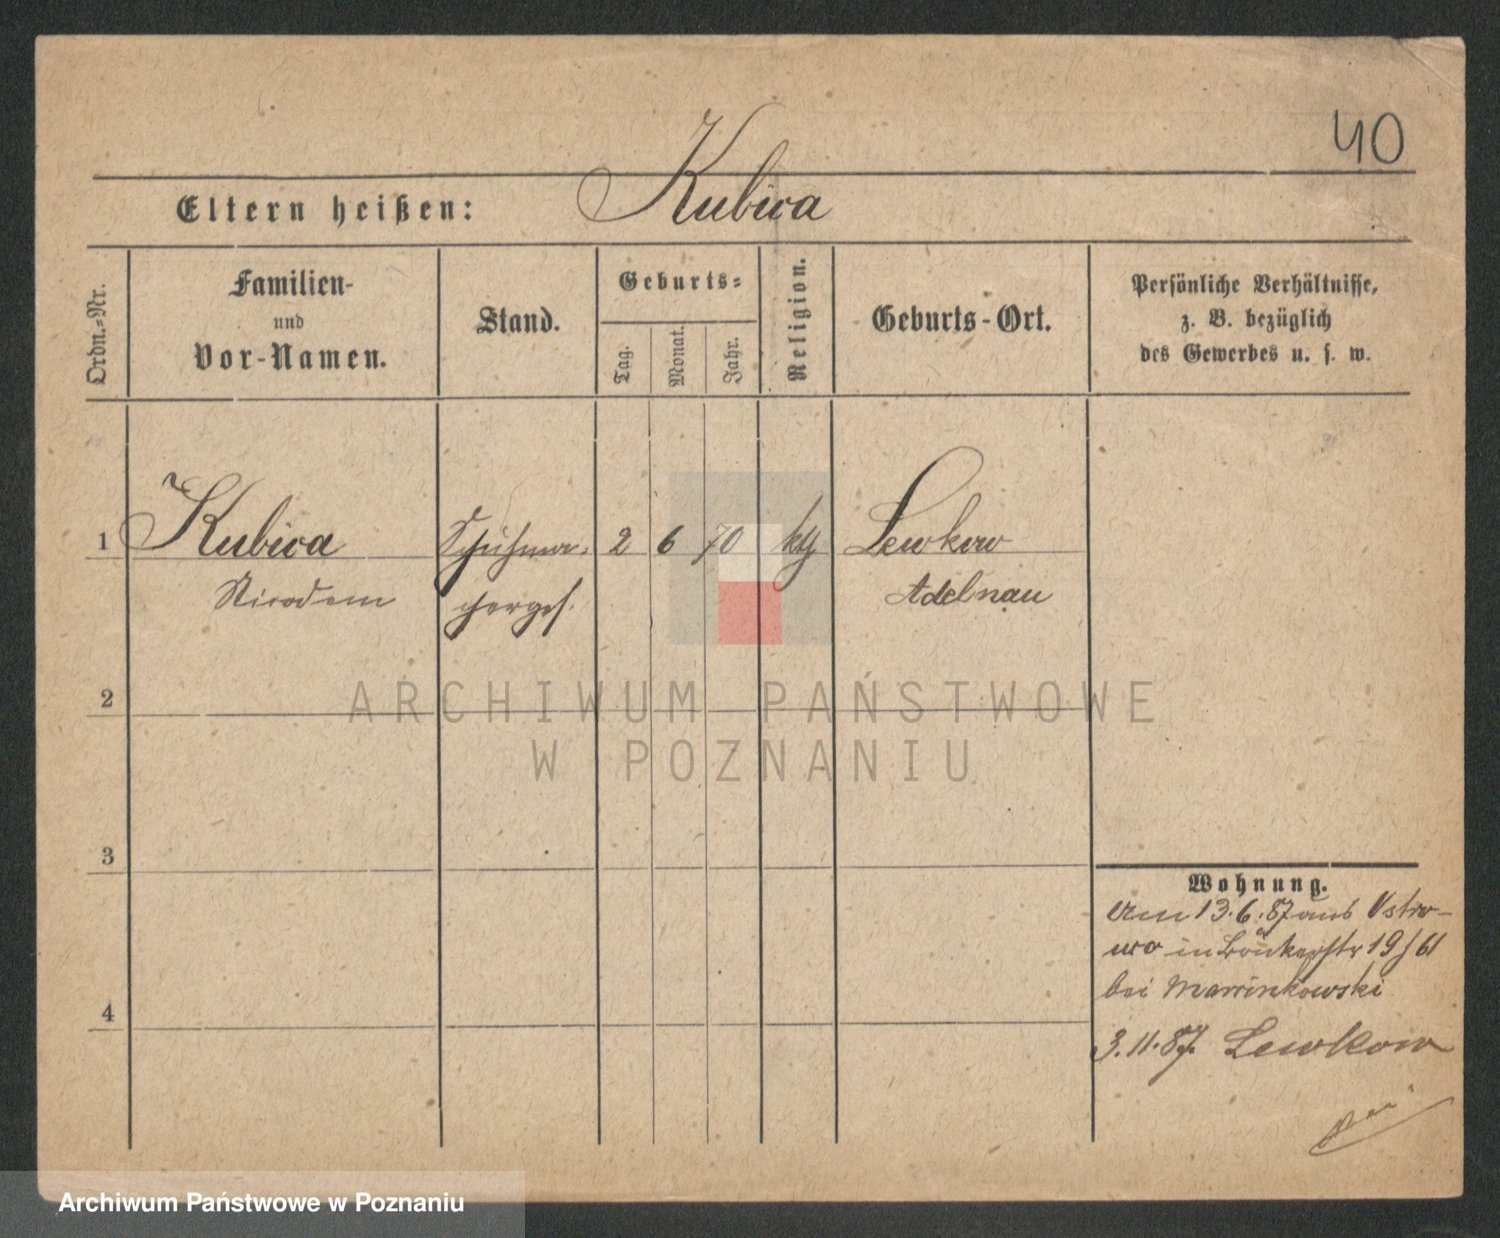 40
Eltern heißen: Kubica
Ordn.-Nr.
Familien-
und
Vor-Namen.
Stand.
Geburts-
Tag.
Monat.
Jahr.
Religion.
Geburts-Ort.
Persönliche Verhältnisse,
z. B. bezüglich
des Gewerbes u. s. w.
1 Kubica Schuhma- 2 6 70 kth Lewkow
Nicodem cherges. Adelnau
2
ARCHIWUM PAŃSTWOWE
W POZNANIU
3
4
Wohnung.
Am 13.6.87 aus Ostro-
wo in Bäckerstr 19/61
bei Marcinkowski
3.11.87. Lewkow
Archiwum Państwowe w Poznaniu